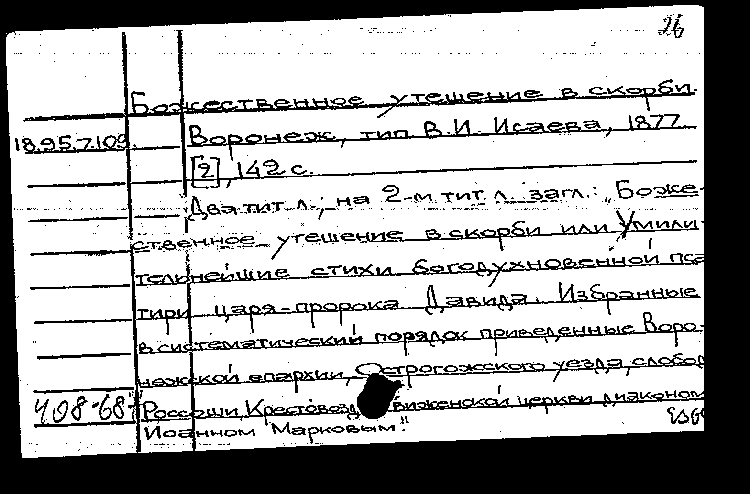 26
Божественное утешение в скорби.
18.95.7.109. Воронеж, тип В.И. Исаева, 1877.
[2], 142 с.
Два тит л., на 2-м тит л. загл.: „Боже-
ственное утешение в скорби или Умили-
тельнейшие стихи богодухновенной пса
тири царя-пророка Давида. Избранные
в систематический порядок приведенные Воро-
нежской епархии, Острогожского уезда, слобод
Россоши, Крестовоздвиженской церкви диаконом
Иоанном Марковым."